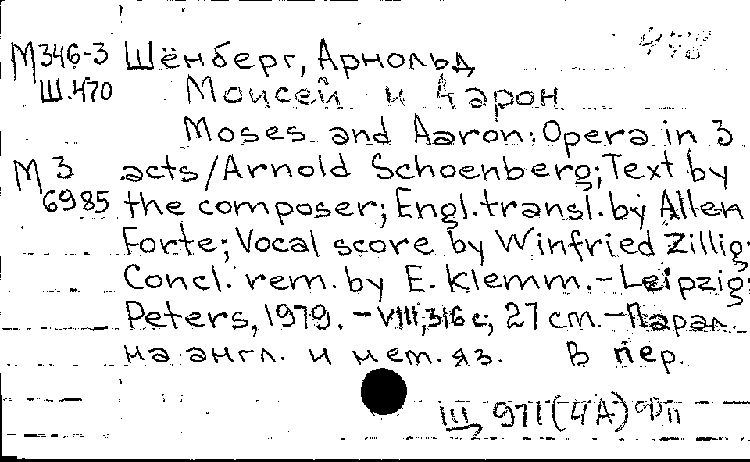 М346-3 Шёнберг, Арнольд
Ш.470 Моисей и Аарон
Moses and Aaron: Opera in 3
М3 acts/Arnold Schoenberg; Text by
6985 the composer; Engl.transl.by Allen
Forte; Vocal score by Winfried Zillig;
Concl. rem. by E. Klemm.-Leipzig:
Peters, 1979. - VIII,316 с; 27 cm.-Парал.
на англ. и нем. яз. В пер.